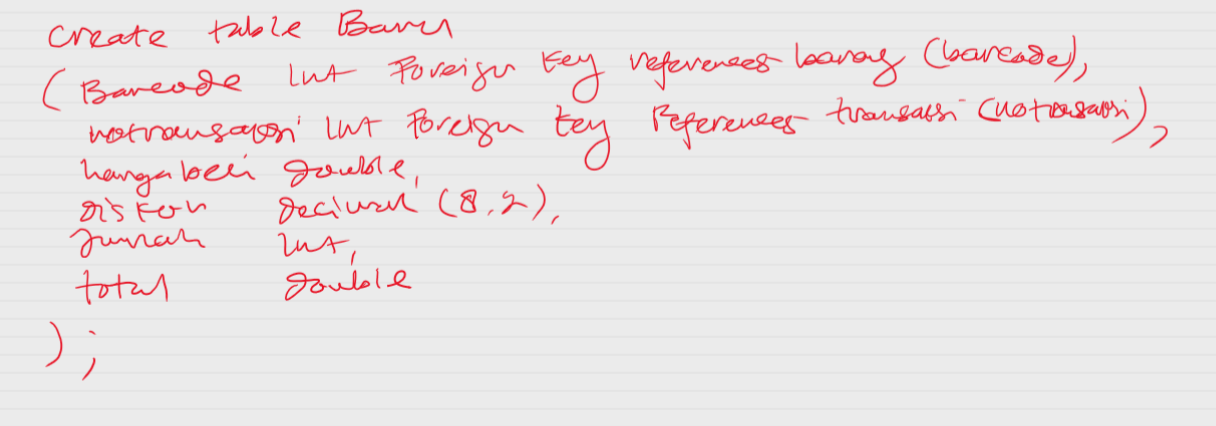 Create table Baru
(Barcode Int Foreign key references barang (barcode),
notransaksi Int Foreign key References transaksi (notransaksi),
hargabeli double,
diskon decimal (8,2),
Jumlah Int,
total double
);